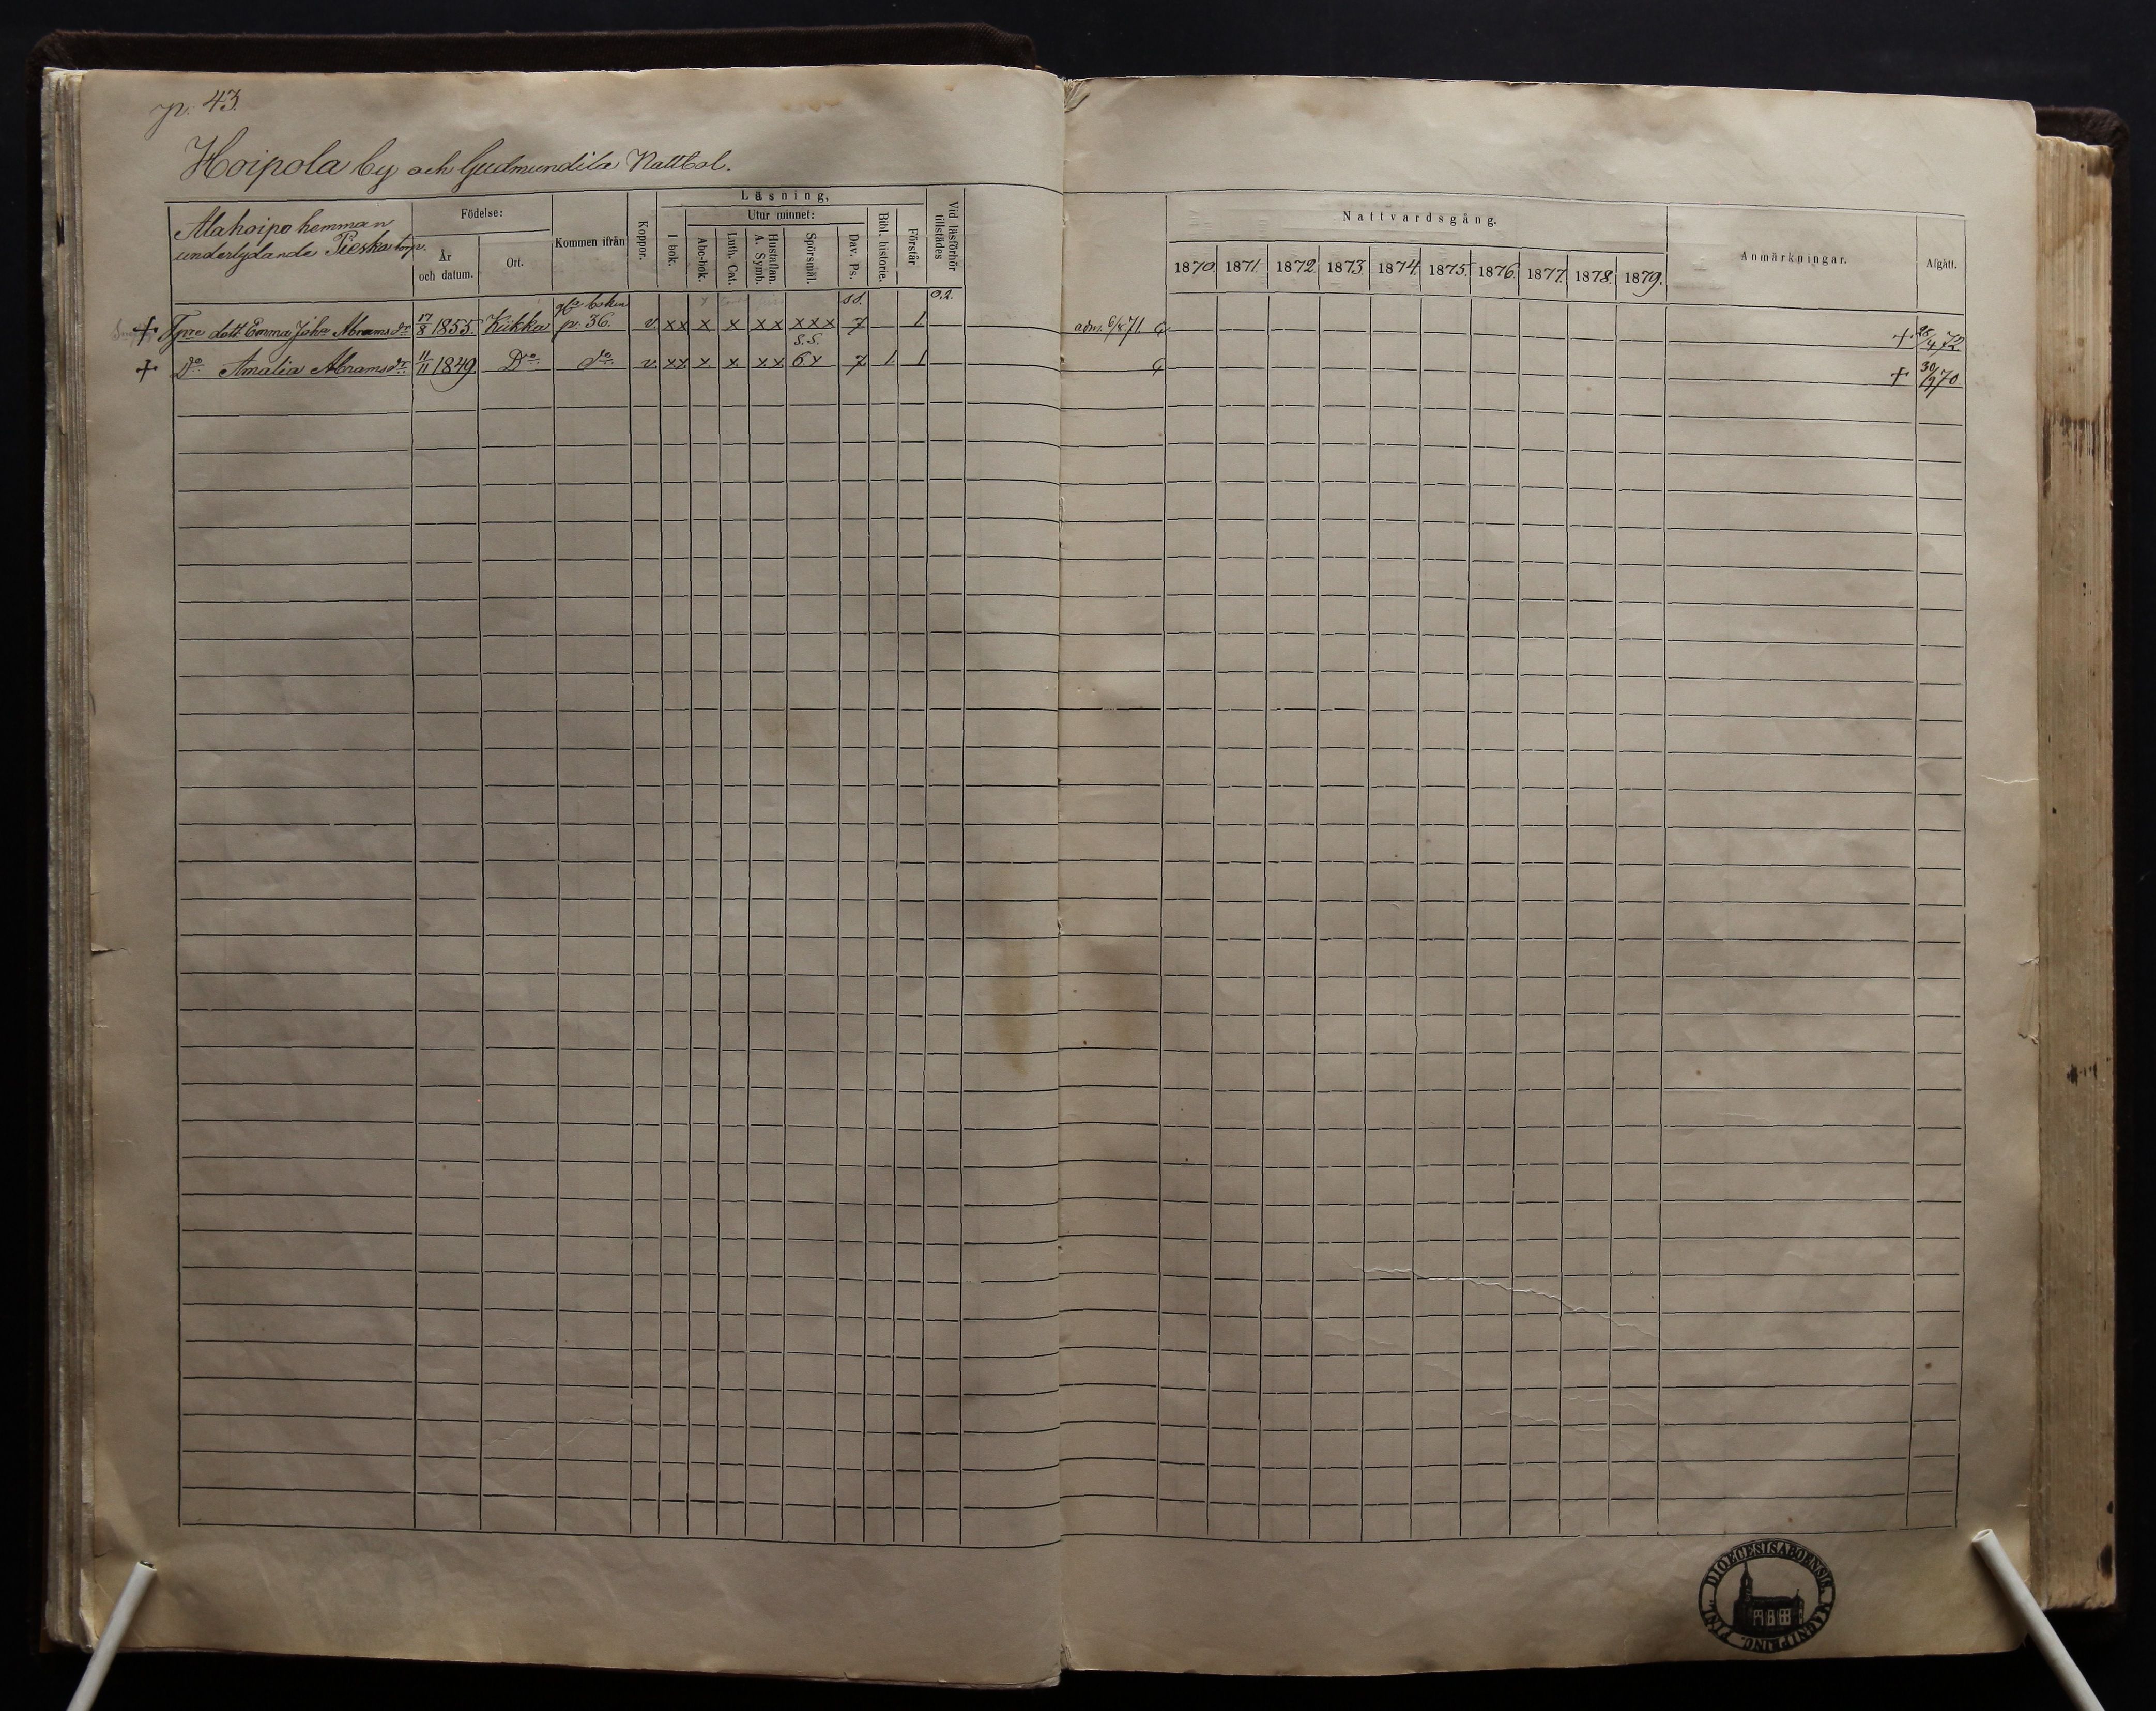 p. 43.
Hoipola by och Gudmundila Nattbol.
Alahoipo hemman
underlydande Pieska torp.
Födelse:
År
och datum.
Ort.
Kommen ifrån
Koppor.
Läsning,
I bok.
Utur minnet:
Abc-bok.
Luth. Cat.
Hustaflan.
A. Symb.
Spörsmål.
Dav. Ps.
Bibl. historie.
Förstår
Vid läsförhör
tillstädes
Nattvardsgång.
1870. 1871. 1872. 1873. 1874. 1875. 1876. 1877. 1878. 1879.
Anmärkningar.
Afgått.
+ dott. Emma Joh:a Abramsdr 17/8 1855. Kiikka p. 36. v. xx x x xx xxx 7 1 adm. 6/8 71 + 28/4 72
+ Do Amalia Abramsdr 11/11 1849 Do do v. xx x. x. xx 6x 7 1. 1 + 30/9 70.
DIOECESIS ABOENSIS MAGNI PRINC. FINL.